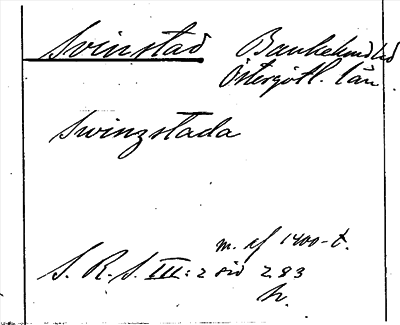 Svinstad Bankekinds hd
Östergötl. län
Swinzstada
m. af 1400-t.
S. R. S. III: 2 sid 283